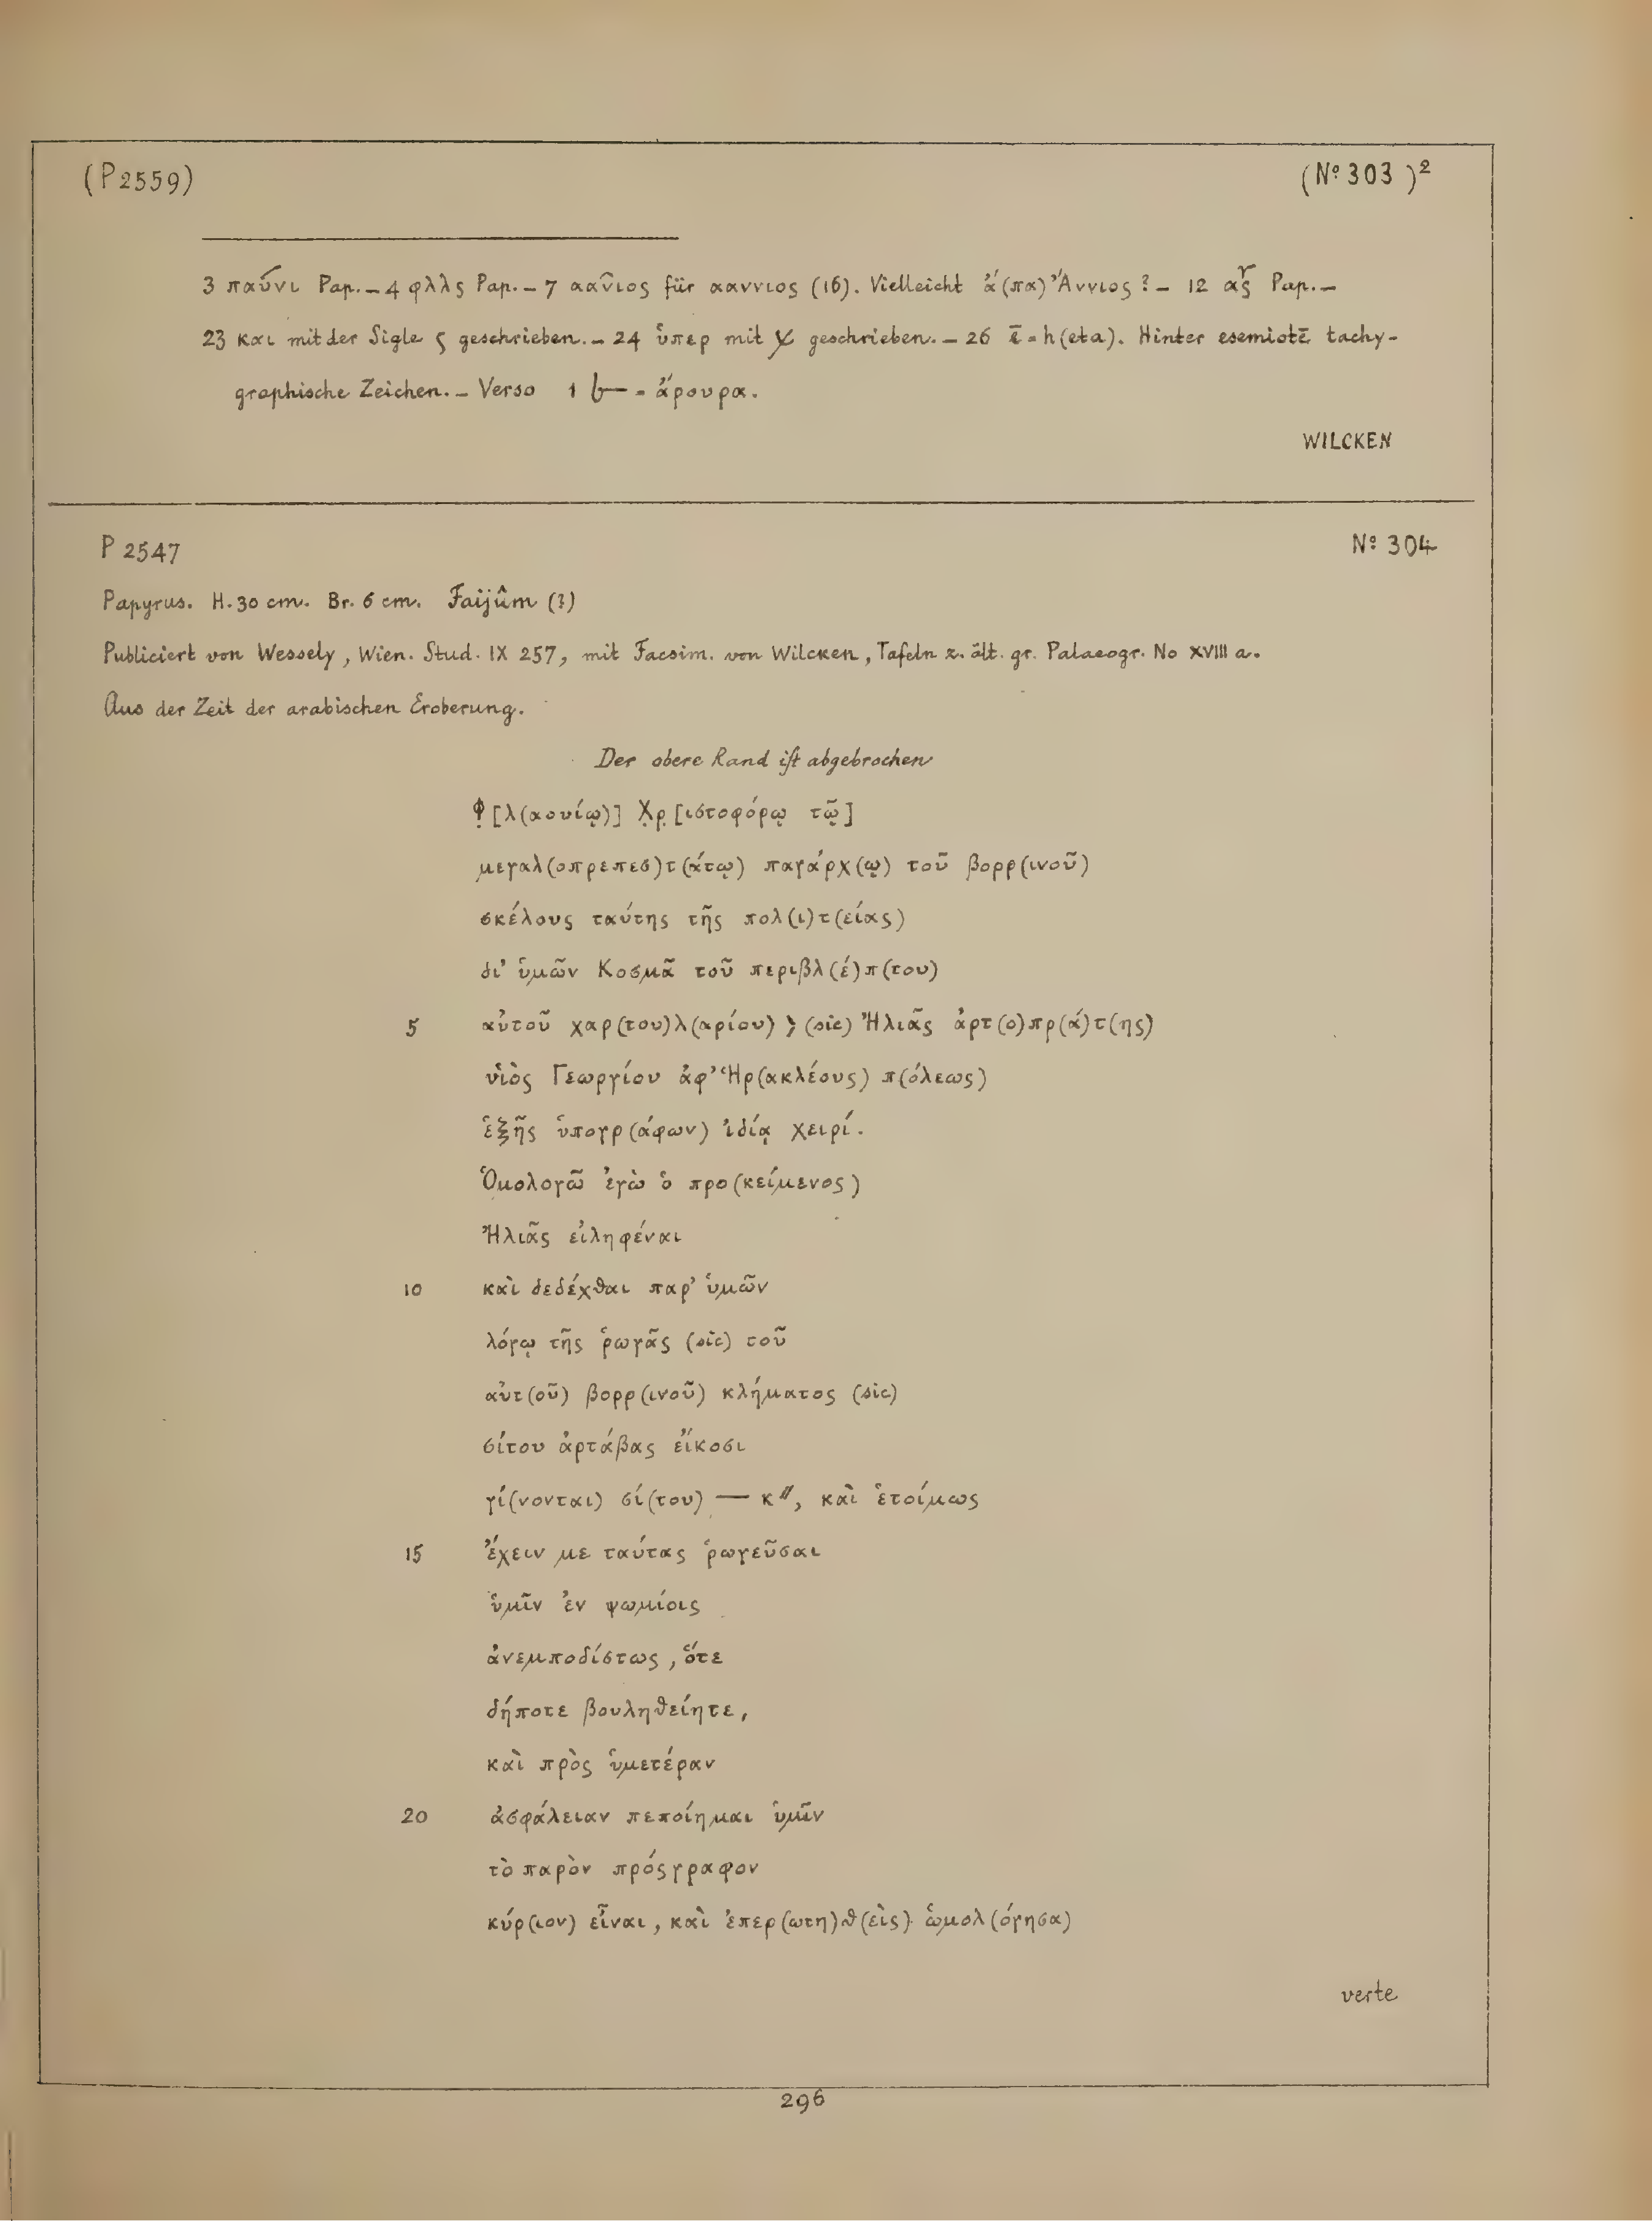 (P 2559)
(Nº 303)²
3 παῦνι Pap. – 4 φλλς Pap. – 7 ααν̄ιος für αανvιος (16). Vielleicht ἄ(πα) Ἄννιος? – 12 Pap. –
23 και mit der Sigle ς geschrieben. – 24 ὑπερ mit geschrieben. – 26 ē = h(eta). Hinter esemiotē tachy-
graphische Zeichen. – Verso 1 = ἄρουρα.
WILCKEN
P 2547
Nº 304
Papyrus. H. 30 cm. Br. 6 cm. Faijûm (?)
Publiciert von Wessely, Wien. Stud. IX 257, mit Facsim. von Wilcken, Tafeln z. ält. gr. Palaeogr. No XVIII a.
Aus der Zeit der arabischen Eroberung.
Der obere Rand ist abgebrochen
Φ̣[λ(αουίῳ)] Χ̣ρ̣[ιστοφόρῳ τῷ]
μεγαλ(οπρεπεσ)τ(άτῳ) παγάρχ(ῳ) τοῦ βορρ(ινοῦ)
σκέλους ταύτης τῆς πολ(ι)τ(είας)
δι' ὑμῶν Κοσμᾶ τοῦ περιβλ(έ)π(του)
5 αὐτοῦ χαρ(του)λ(αρίου) (sic) Ἠλιᾶς ἀρτ(ο)πρ(ά)τ(ης)
υἱὸς Γεωργίου ἀφ' Ἡρ(ακλέους) π(όλεως)
ἑξῆς ὑπογρ(άφων) ἰδίᾳ χειρί.
Ὁμολογῶ ἐγὼ ὁ προ(κείμενος)
Ἠλιᾶς εἰληφέναι
10 καὶ δεδέχθαι παρ' ὑμῶν
λόγῳ τῆς ῥωγᾶς (sic) τοῦ
αὐτ(οῦ) βορρ(ινοῦ) κλήματος (sic)
σίτου ἀρτάβας εἴκοσι
γί(νονται) σί(του) — κ〃, καὶ ἑτοίμως
15 ἔχειν με ταύτας ῥωγεῦσαι
ὑμῖν ἐν ψωμίοις
ἀνεμποδίστως, ὅτε
δήποτε βουληθείητε,
καὶ πρὸς ὑμετέραν
20 ἀσφάλειαν πεποίημαι ὑμῖν
τὸ παρὸν πρόςγραφον
κύρ(ιον) εἶναι, καὶ ἐπερ(ωτη)θ(εὶς) ὡμολ(όγησα)
verte
296